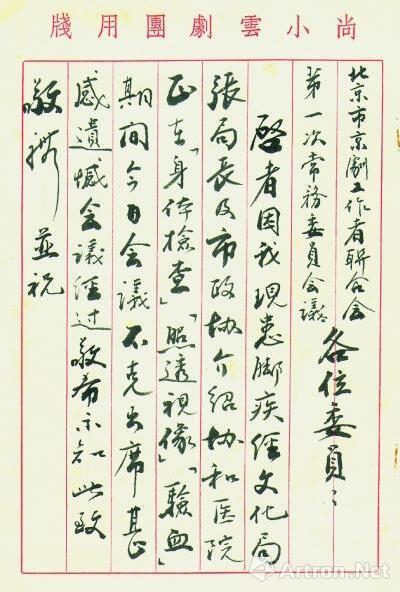 尚小雲劇團用牋
北京市京劇工作者聯合会
第一次常務委員会議
各位委員：
啓者因我現患脚疾經文化局
張局長及市政协介紹协和医院
正在「身体檢查」「照透視像」「驗血」
期間今日会議不克出席甚
感遺憾会議經过敬希示知此致
敬礼並祝
Artron.Net